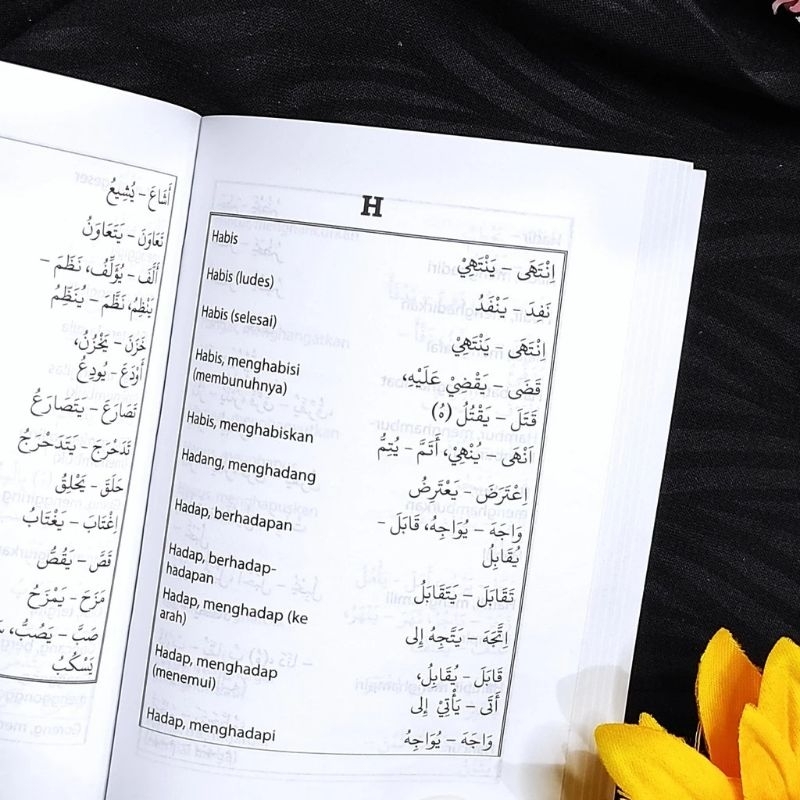 أَشَاعَ – يُشِيعُ
تَعَاوَنَ – يَتَعَاوَنُ
أَلَّفَ – يُؤَلِّفُ، نَظَمَ –
يَنْظِمُ، نَظَّمَ – يُنَظِّمُ
خَزَنَ – يَخْزُنُ،
أَوْدَعَ – يُودِعُ
تَصَارَعَ – يَتَصَارَعُ
تَدَحْرَجَ – يَتَدَحْرَجُ
حَلَقَ – يَحْلِقُ
اِغْتَابَ – يَغْتَابُ
قَصَّ – يَقُصُّ
مَزَحَ – يَمْزَحُ
صَبَّ – يَصُبُّ،
يَسْكُبُ
H
Habis اِنْتَهَى – يَنْتَهِيْ
Habis (ludes) نَفِدَ – يَنْفَدُ
Habis (selesai) اِنْتَهَى – يَنْتَهِيْ
Habis, menghabisi قَضَى – يَقْضِيْ عَلَيْهِ،
(membunuhnya) قَتَلَ – يَقْتُلُ (هُ)
Habis, menghabiskan اَنْهَى – يُنْهِيْ، أَتَمَّ – يُتِمُّ
Hadang, menghadang اِعْتَرَضَ – يَعْتَرِضُ
Hadap, berhadapan وَاجَهَ – يُوَاجِهُ، قَابَلَ –
يُقَابِلُ
Hadap, berhadap- تَقَابَلَ – يَتَقَابَلُ
hadapan
Hadap, menghadap (ke اِتَّجَهَ – يَتَّجِهُ إِلى
arah)
Hadap, menghadap قَابَلَ – يُقَابِلُ،
(menemui) أَتَى – يَأْتِيْ إِلى
Hadap, menghadapi وَاجَهَ – يُوَاجِهُ